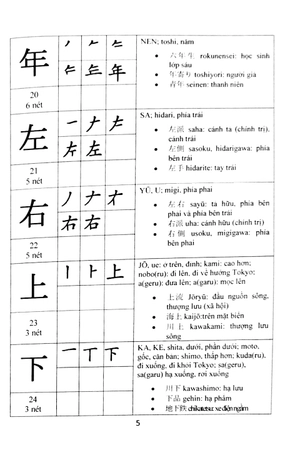 年
20
6 nét
NEN; toshi, năm
• 六年生 rokunensei: học sinh
lớp sáu
• 年寄り toshiyori: người già
• 青年 seinen: thanh niên
左
21
5 nét
SA; hidari, phía trái
• 左派 saha: cánh tả (chính trị),
cánh trái
• 左側 sasoku, hidarigawa: phía
bên trái
• 左手 hidarite: tay trái
右
22
5 nét
YŪ, U; migi, phía phải
• 左右 sayū: tả hữu, phía bên
phải và phía bên trái
• 右派 uha: cánh hữu (chính trị)
• 右側 usoku, migigawa: phía
bên phải
上
23
3 nét
JŌ, ue: ở trên, đỉnh; kami: cao hơn;
nobo(ru): đi lên, đi về hướng Tokyo;
a(geru): đưa lên; a(garu): mọc lên
• 上流 Jōryū: đầu nguồn sông,
thượng lưu (xã hội)
• 海上 kaijō: trên mặt biển
• 川上 kawakami: thượng lưu
sông
下
24
3 nét
KA, KE, shita, dưới, phần dưới; moto,
gốc, căn bản; shimo, thấp hơn; kuda(ru),
đi xuống, đi khỏi Tokyo; sa(geru),
sa(garu) hạ xuống, rơi xuống
• 川下 kawashimo: hạ lưu
• 下品 gehin: hạ phẩm
• 地下鉄 chikatetsu: xe điện ngầm
5